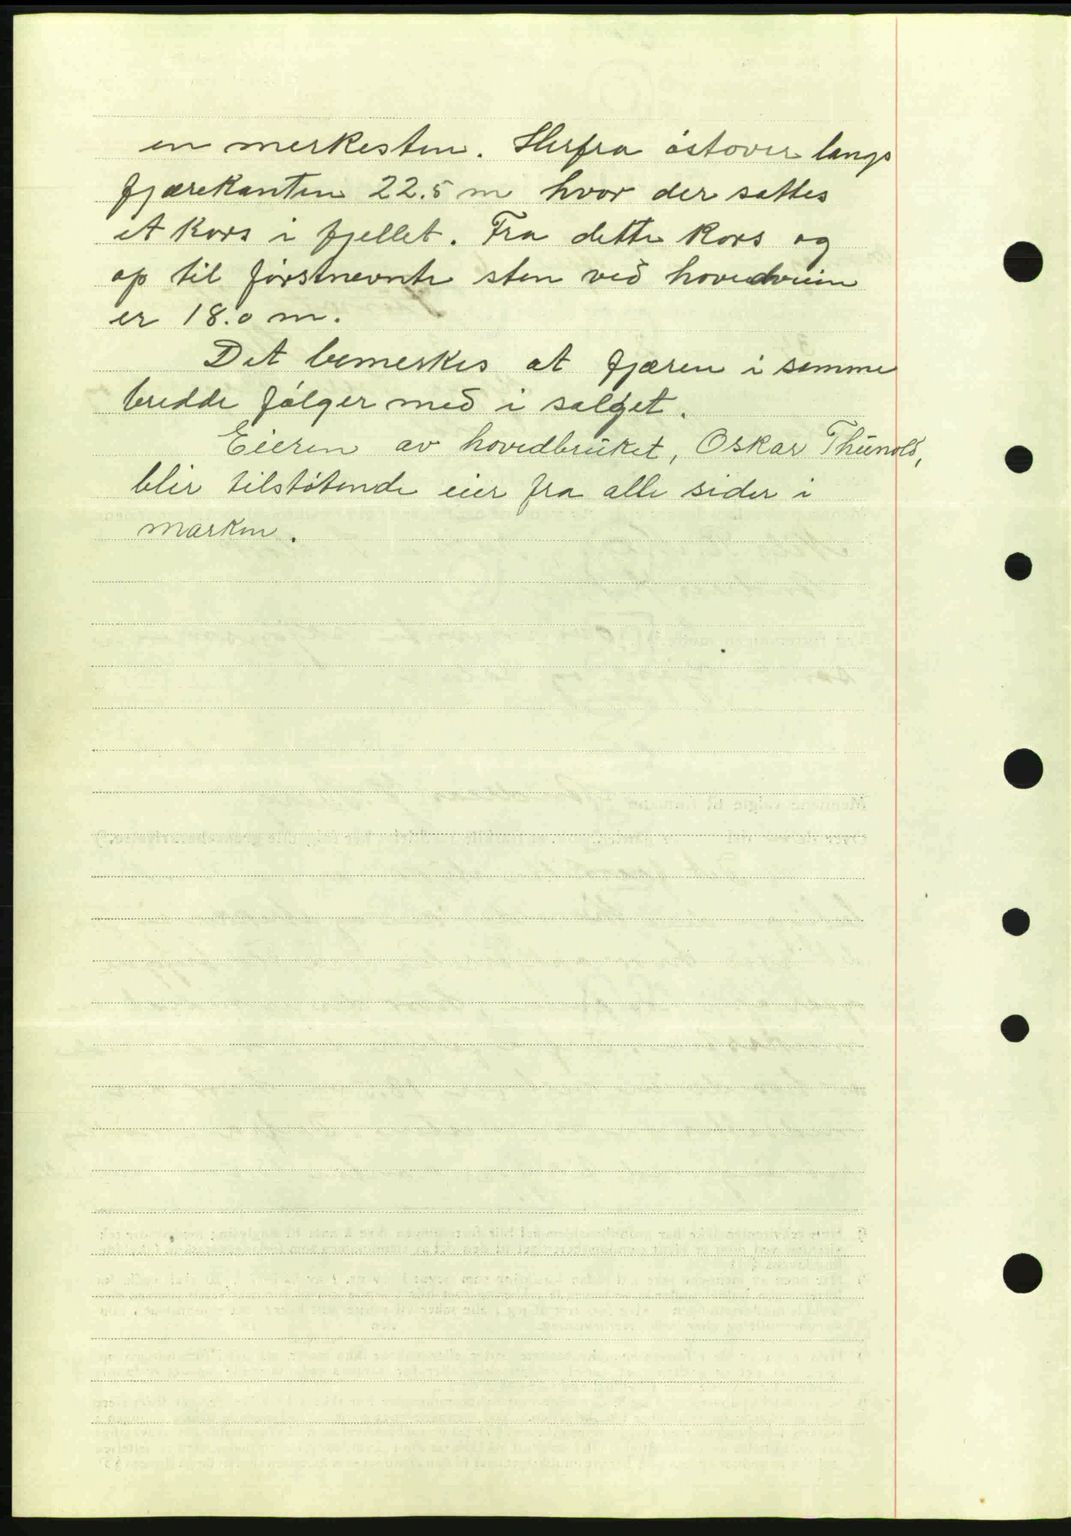 en merkesten. Herfra østover langs
fjærekanten 22.5 m hvor der sattes
et kors i fjellet. Fra dette kors og
op til førstnevnte sten ved hovedveien
er 18.0 m.
Det bemerkes at fjæren i samme
bredde følger med i salget.
Eieren av hovedbruket, Oskar Thunold,
blir tilstøtende eier fra alle sider i
marken.